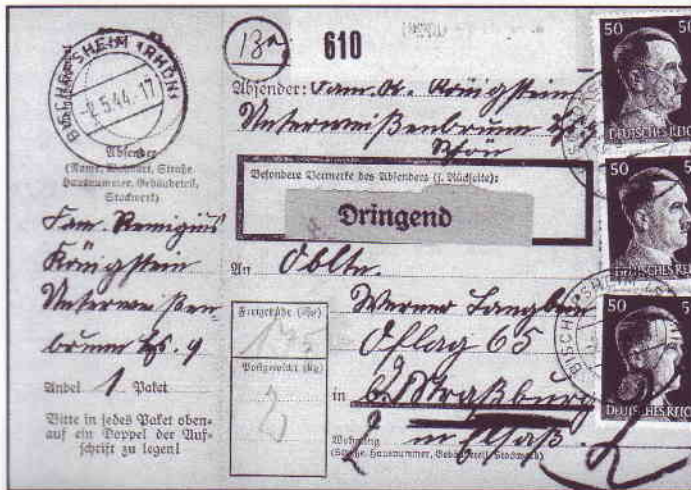 BISCHOFSHEIM (RHÖN)
-2.5.44.-17
Absender
(Name, Wohnort, Straße
Hausnummer, Gebäudeteil,
Stockwerk)
Fam. Remigius
Königstein
Unterweißen-
brunn Hs. 9
Anbei 1 Paket
Bitte in jedes Paket oben-
auf ein Doppel der Auf-
schrift zu legen!
13a
610
Absender: Fam. R. Königstein
Unterweißenbrunn Hs. 9
Rhön
Besondere Vermerke des Absenders (s. Rückseite):
Dringend
An Obltn.
Werner Langbein
Oflag 65
in b. Straßburg
im Elsaß.
Wohnung
(Straße, Hausnummer, Gebäudeteil, Stockwerk)
Freigebühr
Postgewicht (kg)
50 50
DEUTSCHES REICH
50 50
DEUTSCHES REICH
50 50
DEUTSCHES REICH